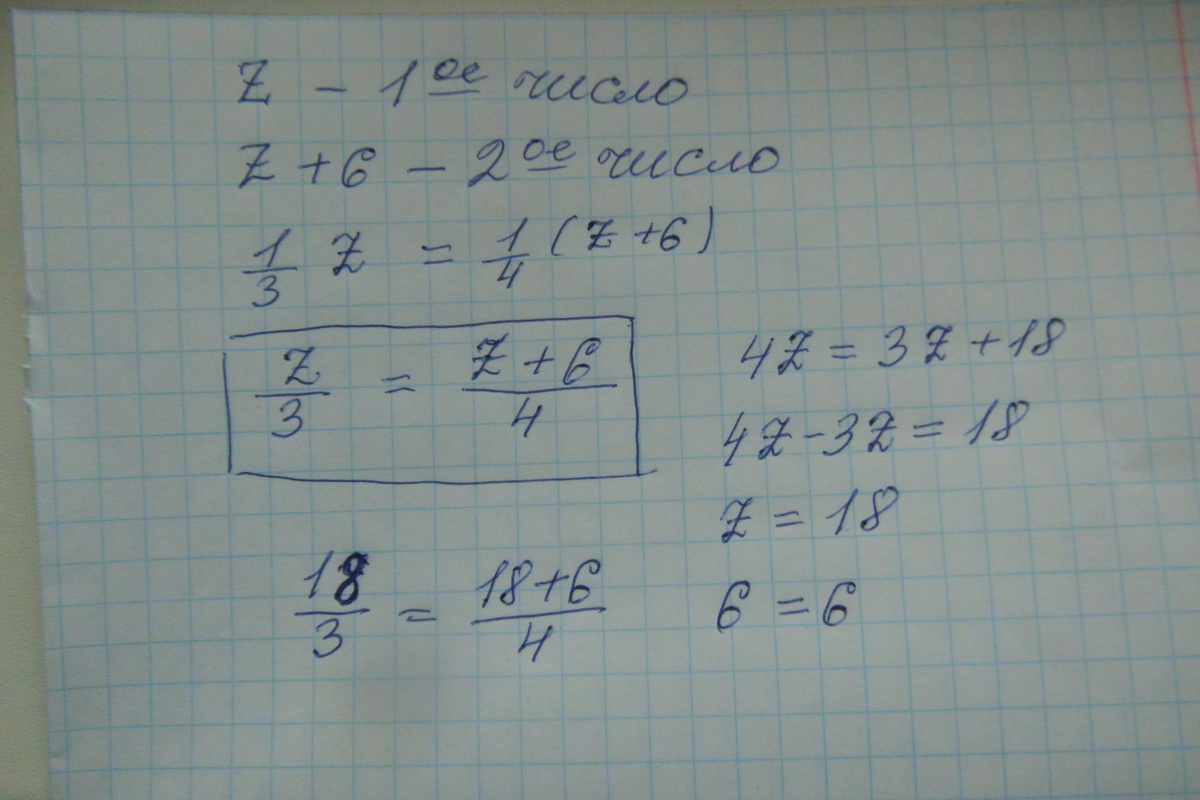 Z - 1ое число
Z + 6 - 2ое число
1/3 Z = 1/4 (Z + 6)
Z/3 = (Z + 6)/4
4Z = 3Z + 18
4Z - 3Z = 18
Z = 18
18/3 = (18 + 6)/4
6 = 6